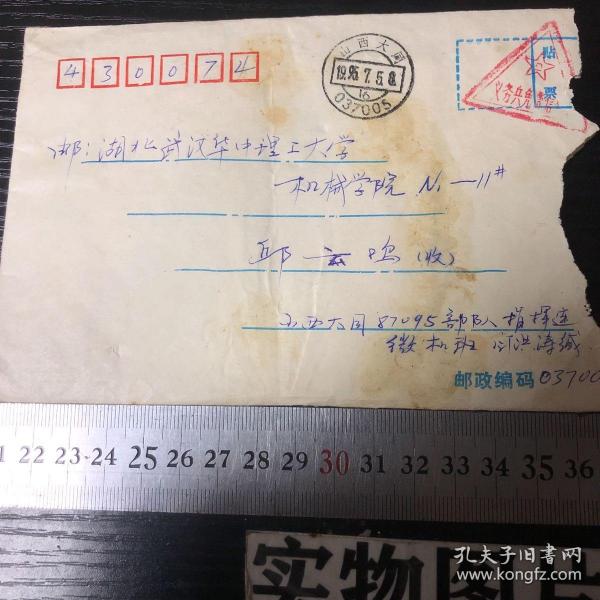 430074
山西大同
1995.7.5.8
16
037005
贴票
义务兵免费
邮:湖北武汉华中理工大学
机械学院 N.一11#
邱云鸣(收)
山西大同87095部队指挥连
微机班 闫洪涛缄
邮政编码 03700
21 22 23 24 25 26 27 28 29 30 31 32 33 34 35 36
实物图
孔夫子旧书网
www.kongfz.com